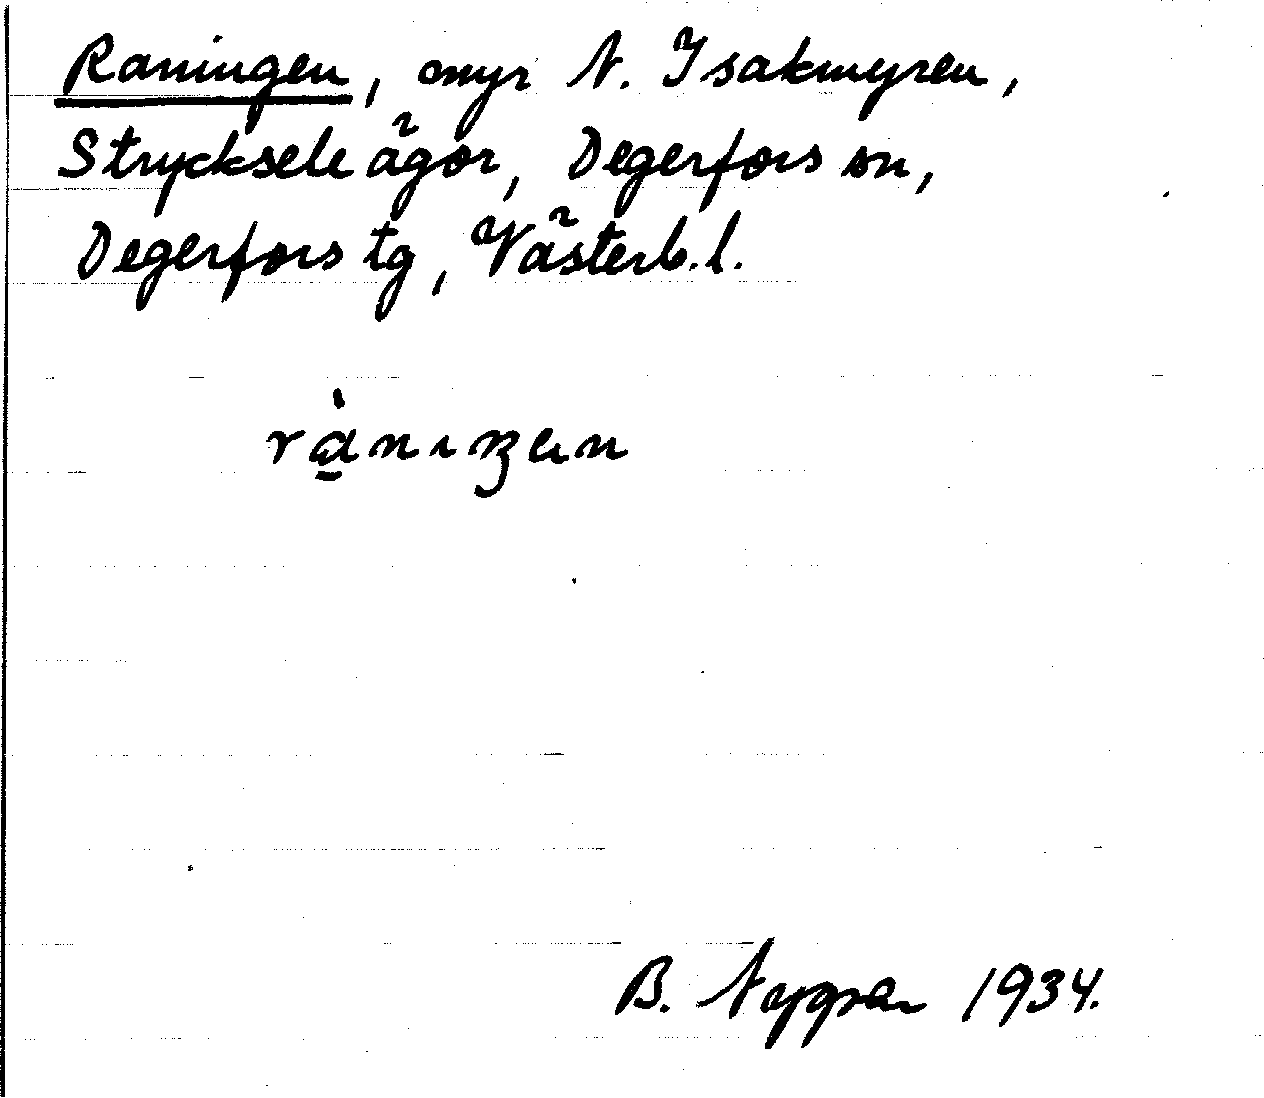 Raningen, myr N. Isakmyren,
Strycksele ägor, Degerfors sn,
Degerfors tg, Västerb. l.
B. Nygren 1934.